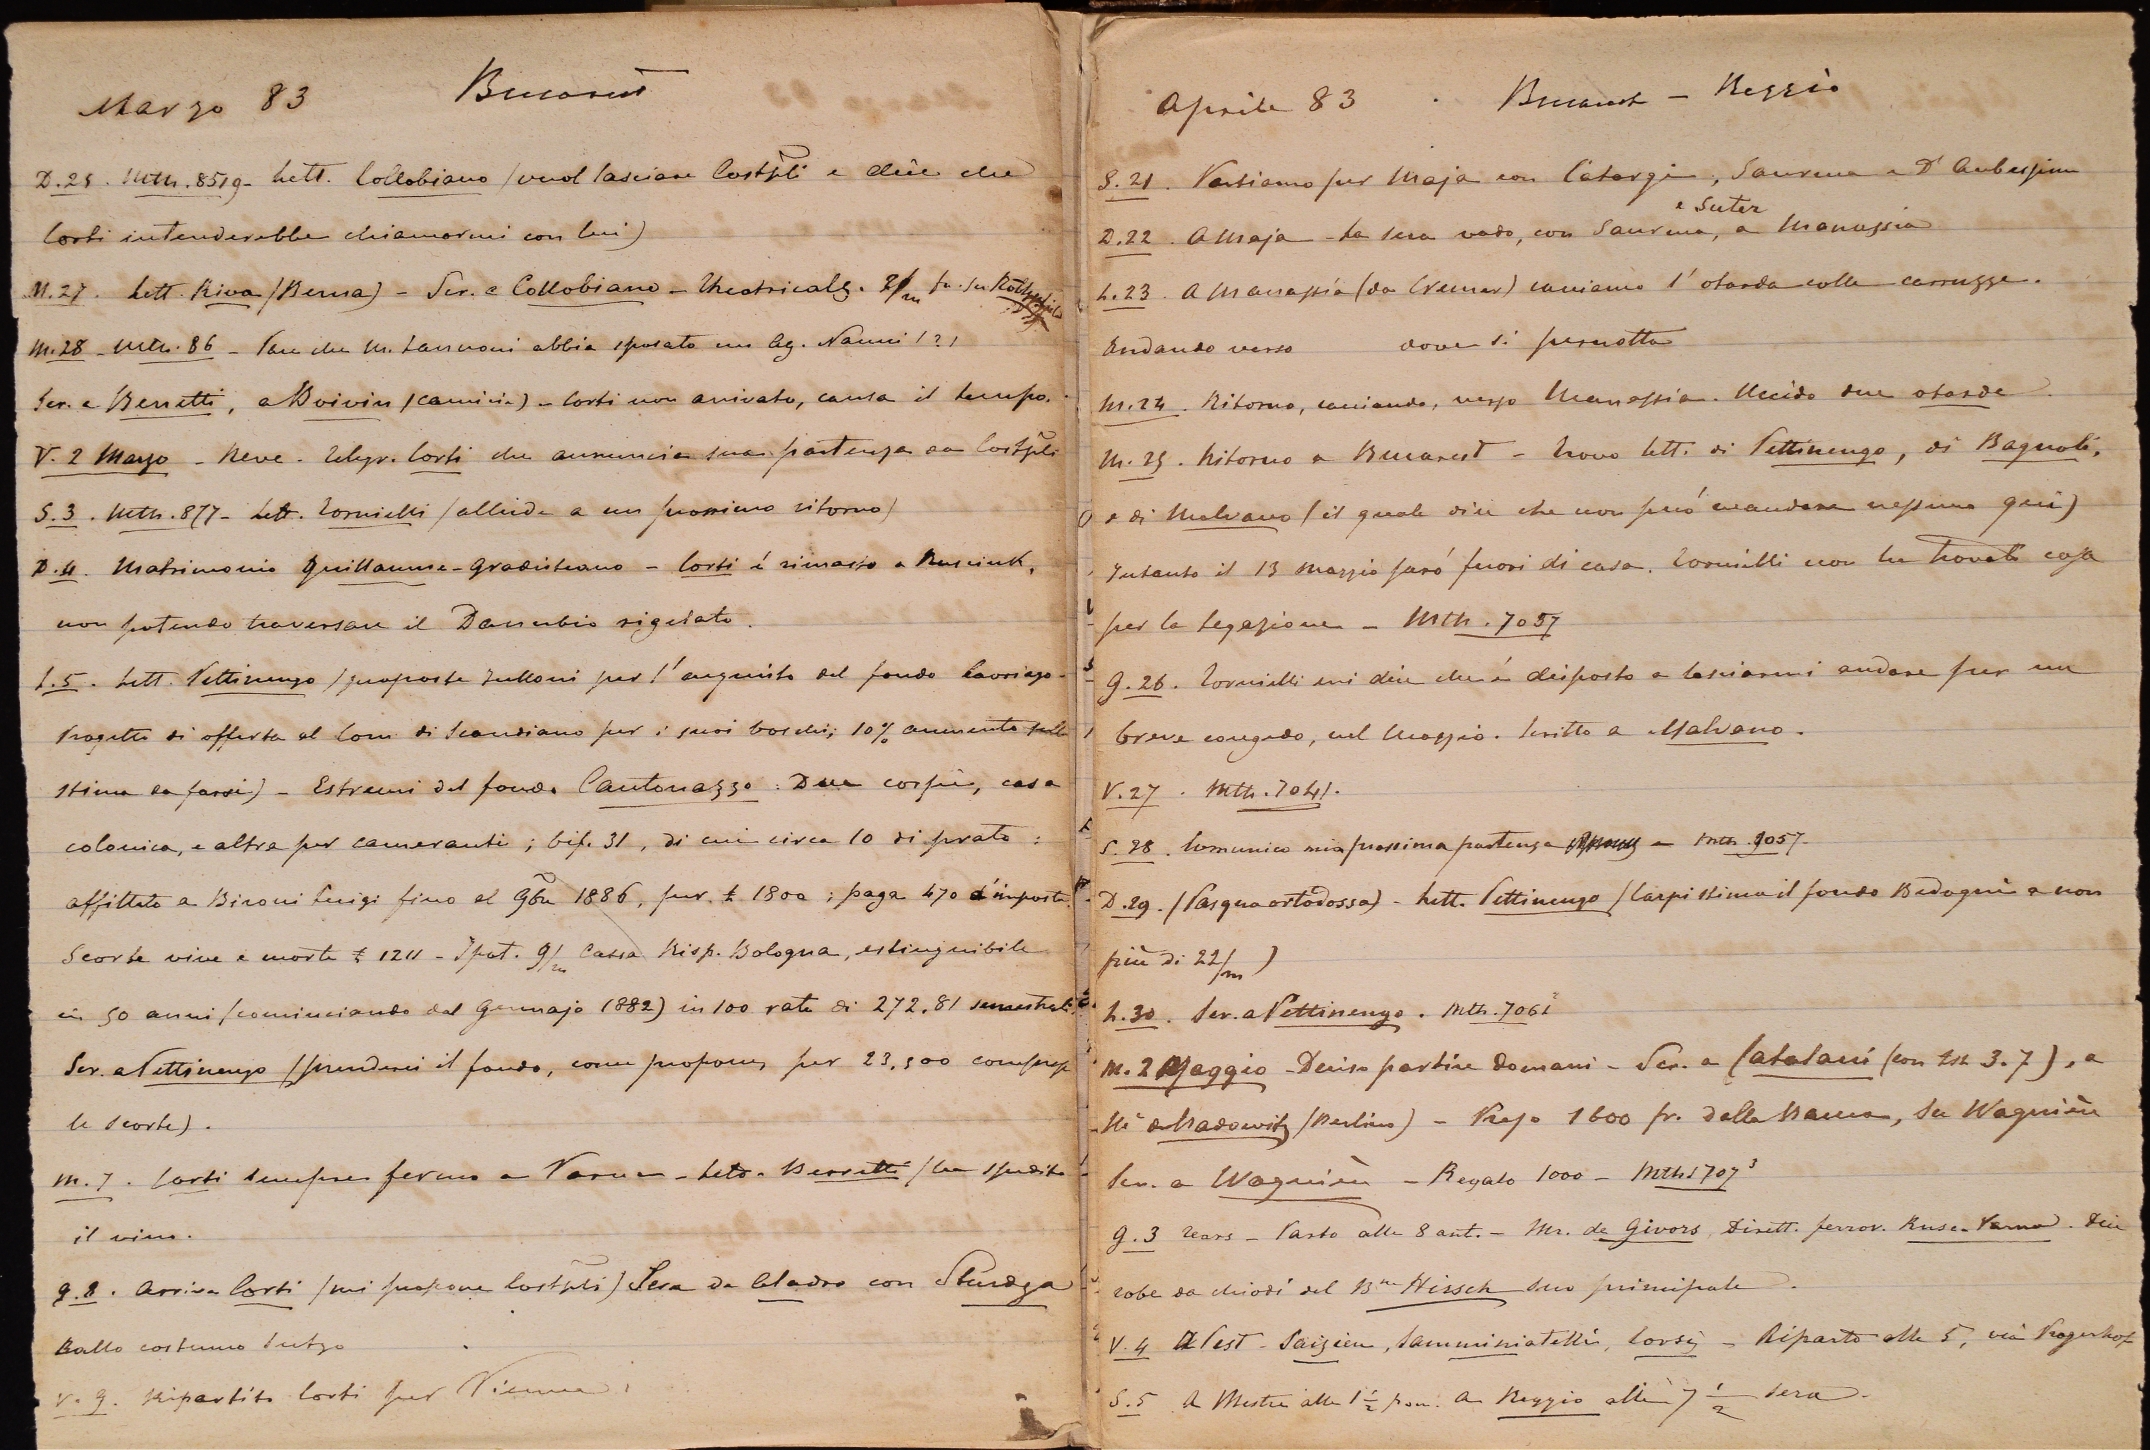 Marzo 83 Bucarest
D.25. Mth. 8519 - Lett. Collobiano (vuol lasciare Costpli e dice che
Corti intenderebbe chiamarmi con lui)
M.27. Lett. Riva (Berna) - Scr. a Collobiano - Theatricals. 2/m fr. su
M.28 - Mth. 86 - Pare che M. Lannoni abbia sposato un Ag. Nanni (?)
Scr. a Berretti, a Boivin (camicie) - Corti non arrivato, causa il tempo.
V. 2 Marzo - Neve. Telegr. Corti che annuncia sua partenza da Costpli
S.3. Mth. 877 - Lett. Tornielli (allude a un prossimo ritorno)
D.4. Matrimonio Guillaume-Gradisteano - Corti é rimasto a Rusciuk,
non potendo traversare il Danubio rigelato.
L.5. Lett. Pettinengo (proposte Tulloni per l'acquisto del fondo Cavriago -
Progetto di offerta al Com. di Scandiano per i suoi boschi; 10% aumento sulla
stima da farsi) - Estremi del fondo Cantonazzo: Due corpi, casa
colonica, e altra per cameranti; bif. 31, di cui circa 10 di prato:
affittato a Bironi Luigi fino al 9bre 1886, per £ 1800; paga 470 d'imposte.
Scorte vive e morte £ 1211 - Ipot. 9/m Cassa Risp. Bologna, estinguibile
in 50 anni (cominciando dal Gennajo 1882) in 100 rate di 272.81 semestrali.
Scr. a Pettinengo (prenderei il fondo, come propone, per 23,500 comprese
le scorte).
M.7. Corti sempre fermo a Varna - Lett. Berretti (ha spedito
il vino.
G.8. Arriva Corti (mi propone Costpli) Sera da Ghadro con Sturdza
Ballo costume Sutzo
V.9. Ripartito Corti per Vienna.
Aprile 83. Bucarest - Reggio
S.21. Partiamo per Maja con Catargi, Saurma e D'Aubespine
e Suter
D.22. A Maja - La sera vado, con Saurma, a Manassia
L.23. A Manassia (da Cremer) cacciamo l'otarda colle carrozze.
Andando verso dove si pernotta
M.24. Ritorno, cacciando, verso Manassia. Uccido due otarde
M.25. Ritorno a Bucarest - Trovo lett. di Pettinengo, di Bagnoli,
e di Malvano (il quale dice che non può mandare nessuno qui)
Intanto il 13 Maggio sarò fuori di casa. Tornielli non ha trovato casa
per la Legazione - Mth. 7037
G.26. Tornielli mi dice che é disposto a lasciarmi andare per un
breve congedo, nel Maggio. Scritto a Malvano.
V.27. Mth. 7041.
S.28. Comunico mia prossima partenza a Mth. 7057.
D.29. (Pasqua ortodossa) - Lett. Pettinengo (Carpi stima il fondo Bedogni a non
più di 22/m)
L.30. Scr. a Pettinengo. Mth. 7061
M.2 Maggio - Deciso partire domani - Scr. a Catalani (con Lst 3.7), a
de Radowitz (Berlino) - Preso 1600 fr. dalla Banca, su Wagnière
Scr. a Wagnière - Regalo 1000 - Mth. 1707³
G.3 Tears - Parto alle 8 ant. - Mr. de Givors, Dirett. ferrov. Rusc-Varna. Dice
robe da chiodi del Bne Hirsch suo principale.
V.4 A Pest - Saizieu, Samminiatelli, Corsi - Riparto alle 5, via Pragerhof
S.5 A Mestre alle 1 ½ pom. A Reggio alle 7 ½ sera.